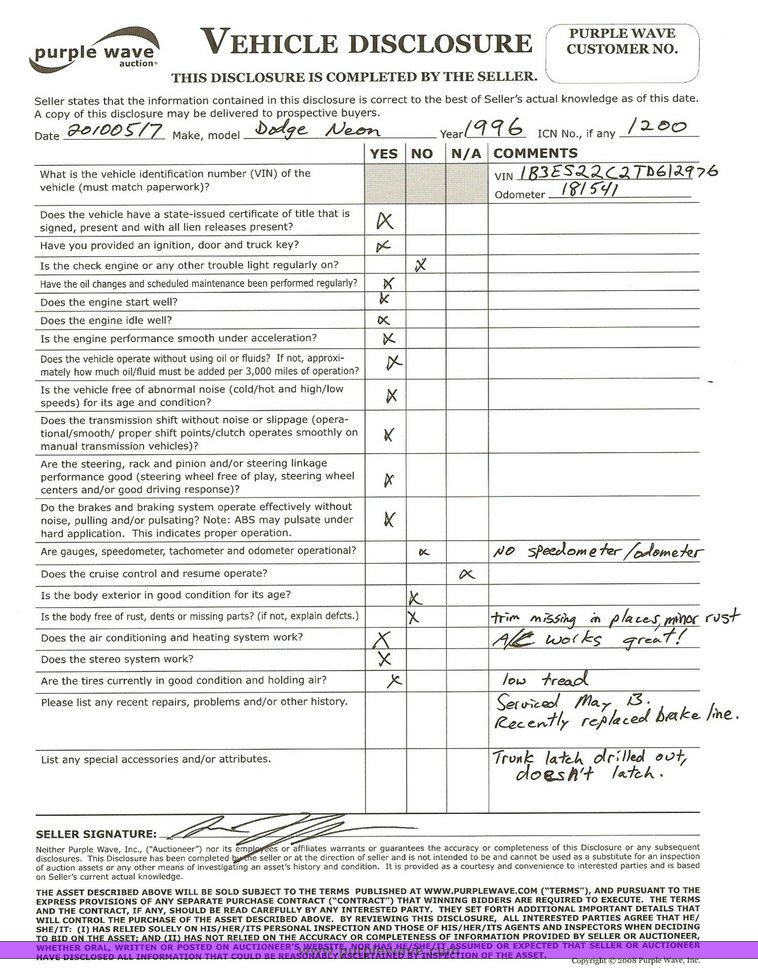 purple wave
auction
VEHICLE DISCLOSURE
THIS DISCLOSURE IS COMPLETED BY THE SELLER.
PURPLE WAVE
CUSTOMER NO.
Seller states that the information contained in this disclosure is correct to the best of Seller's actual knowledge as of this date.
A copy of this disclosure may be delivered to prospective buyers.
Date 20100517 Make, model Dodge Neon Year 1996 ICN No., if any 1200
YES NO N/A COMMENTS
What is the vehicle identification number (VIN) of the
vehicle (must match paperwork)?
VIN 1B3ES22C2TD612976
Odometer 181541
Does the vehicle have a state-issued certificate of title that is
signed, present and with all lien releases present? X
Have you provided an ignition, door and truck key? X
Is the check engine or any other trouble light regularly on? X
Have the oil changes and scheduled maintenance been performed regularly? X
Does the engine start well? X
Does the engine idle well? X
Is the engine performance smooth under acceleration? X
Does the vehicle operate without using oil or fluids? If not, approxi-
mately how much oil/fluid must be added per 3,000 miles of operation? X
Is the vehicle free of abnormal noise (cold/hot and high/low
speeds) for its age and condition? X
Does the transmission shift without noise or slippage (opera-
tional/smooth/ proper shift points/clutch operates smoothly on
manual transmission vehicles)? X
Are the steering, rack and pinion and/or steering linkage
performance good (steering wheel free of play, steering wheel
centers and/or good driving response)? X
Do the brakes and braking system operate effectively without
noise, pulling and/or pulsating? Note: ABS may pulsate under
hard application. This indicates proper operation. X
Are gauges, speedometer, tachometer and odometer operational? X NO speedometer/odometer
Does the cruise control and resume operate? X
Is the body exterior in good condition for its age? X
Is the body free of rust, dents or missing parts? (if not, explain defcts.) X trim missing in places, minor rust
Does the air conditioning and heating system work? X A/C works great!
Does the stereo system work? X
Are the tires currently in good condition and holding air? X low tread
Please list any recent repairs, problems and/or other history. Serviced May 13.
Recently replaced brake line.
List any special accessories and/or attributes. Trunk latch drilled out,
doesn't latch.
SELLER SIGNATURE:
Neither Purple Wave, Inc., ("Auctioneer") nor its employees or affiliates warrants or guarantees the accuracy or completeness of this Disclosure or any subsequent
disclosures. This Disclosure has been completed by the seller or at the direction of seller and is not intended to and cannot be used as a substitute for an inspection
of auction assets or any other means of investigating an asset's history and condition. It is provided as a courtesy and convenience to interested parties and is based
on Seller's current actual knowledge.
THE ASSET DESCRIBED ABOVE WILL BE SOLD SUBJECT TO THE TERMS PUBLISHED AT WWW.PURPLEWAVE.COM ("TERMS"), AND PURSUANT TO THE
EXPRESS PROVISIONS OF ANY SEPARATE PURCHASE CONTRACT ("CONTRACT") THAT WINNING BIDDERS ARE REQUIRED TO EXECUTE. THE TERMS
AND THE CONTRACT, IF ANY, SHOULD BE READ CAREFULLY BY ANY INTERESTED PARTY. THEY SET FORTH ADDITIONAL IMPORTANT DETAILS THAT
WILL CONTROL THE PURCHASE OF THE ASSET DESCRIBED ABOVE. BY REVIEWING THIS DISCLOSURE, ALL INTERESTED PARTIES AGREE THAT HE/
SHE/IT: (I) HAS RELIED SOLELY ON HIS/HER/ITS PERSONAL INSPECTION AND THOSE OF HIS/HER/ITS AGENTS AND INSPECTORS WHEN DECIDING
TO BID ON THE ASSET; AND (II) HAS NOT RELIED ON THE ACCURACY OR COMPLETENESS OF INFORMATION PROVIDED BY SELLER OR AUCTIONEER,
WHETHER ORAL, WRITTEN OR POSTED ON AUCTIONEER'S WEBSITE, NOR HAS HE/SHE/IT ASSUMED OR EXPECTED THAT SELLER OR AUCTIONEER
HAVE DISCLOSED ALL INFORMATION THAT COULD BE REASONABLY ASCERTAINED BY INSPECTION OF THE ASSET.
Copyright © 2008 Purple Wave, Inc.